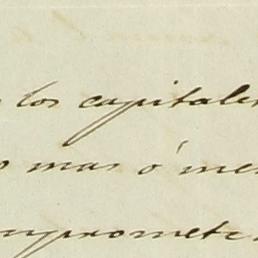 los capitales
mas ó me
compromete